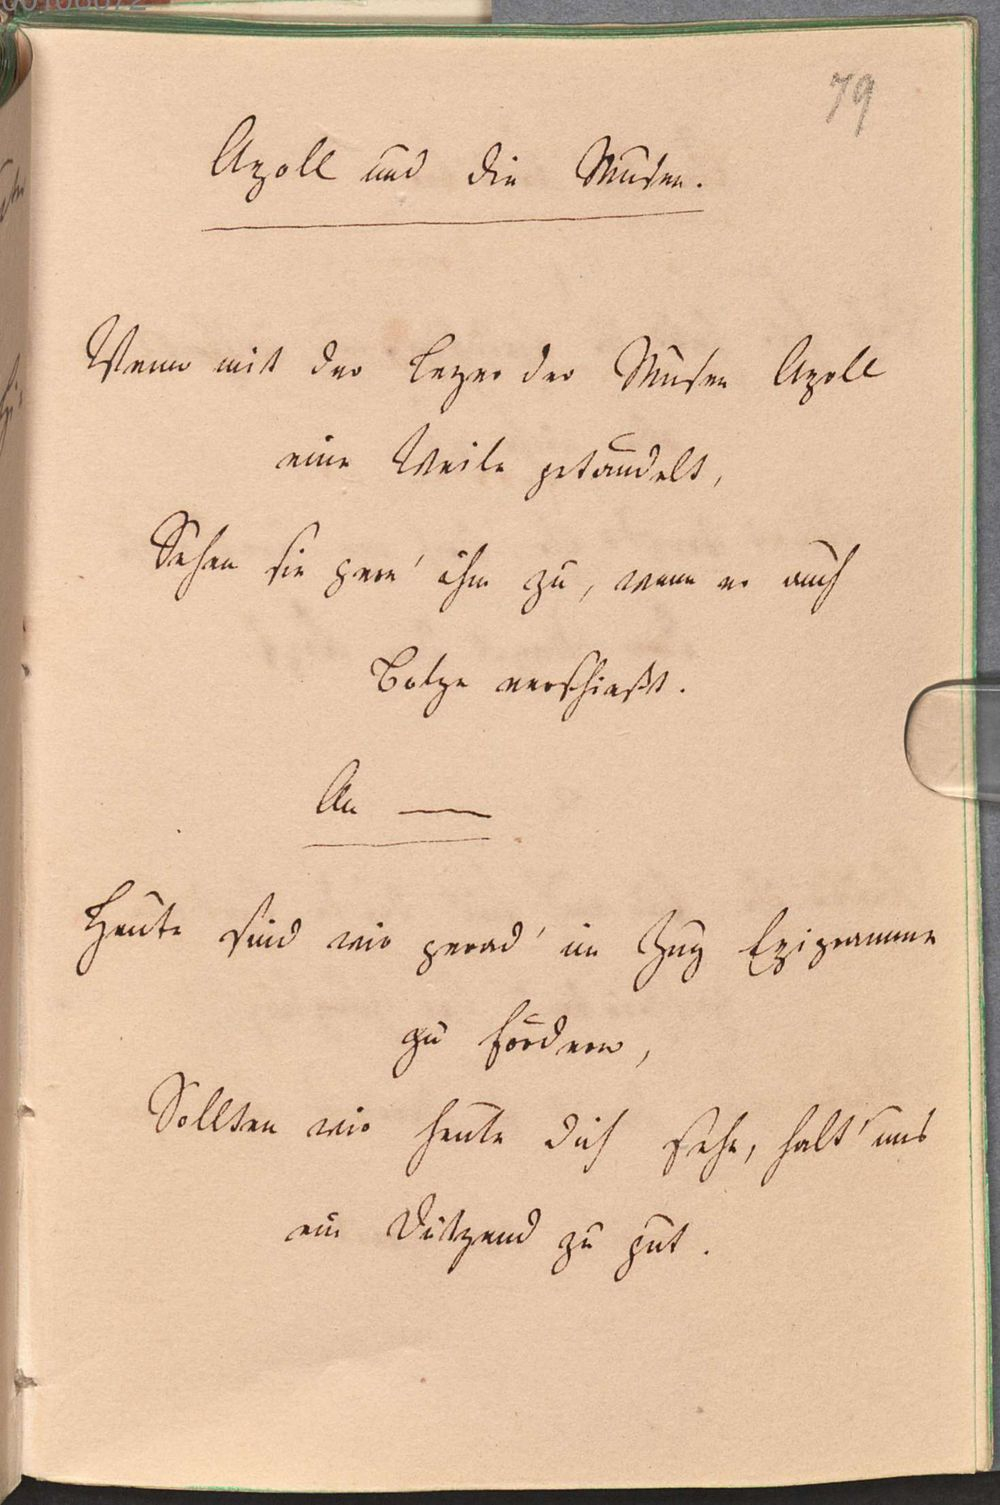 79
Apoll und die Musen.
Wenn mit der Leyer der Musen Apoll
eine Weile getändelt,
Sehen sie gern' ihm zu, wenn er auch
Bolze verschießt.
An —
Heute sind wir gerad' im Zug Epigramme
zu fördern,
Sollten wir heute dich sehn, halt' uns
ein Dutzend zu gut.